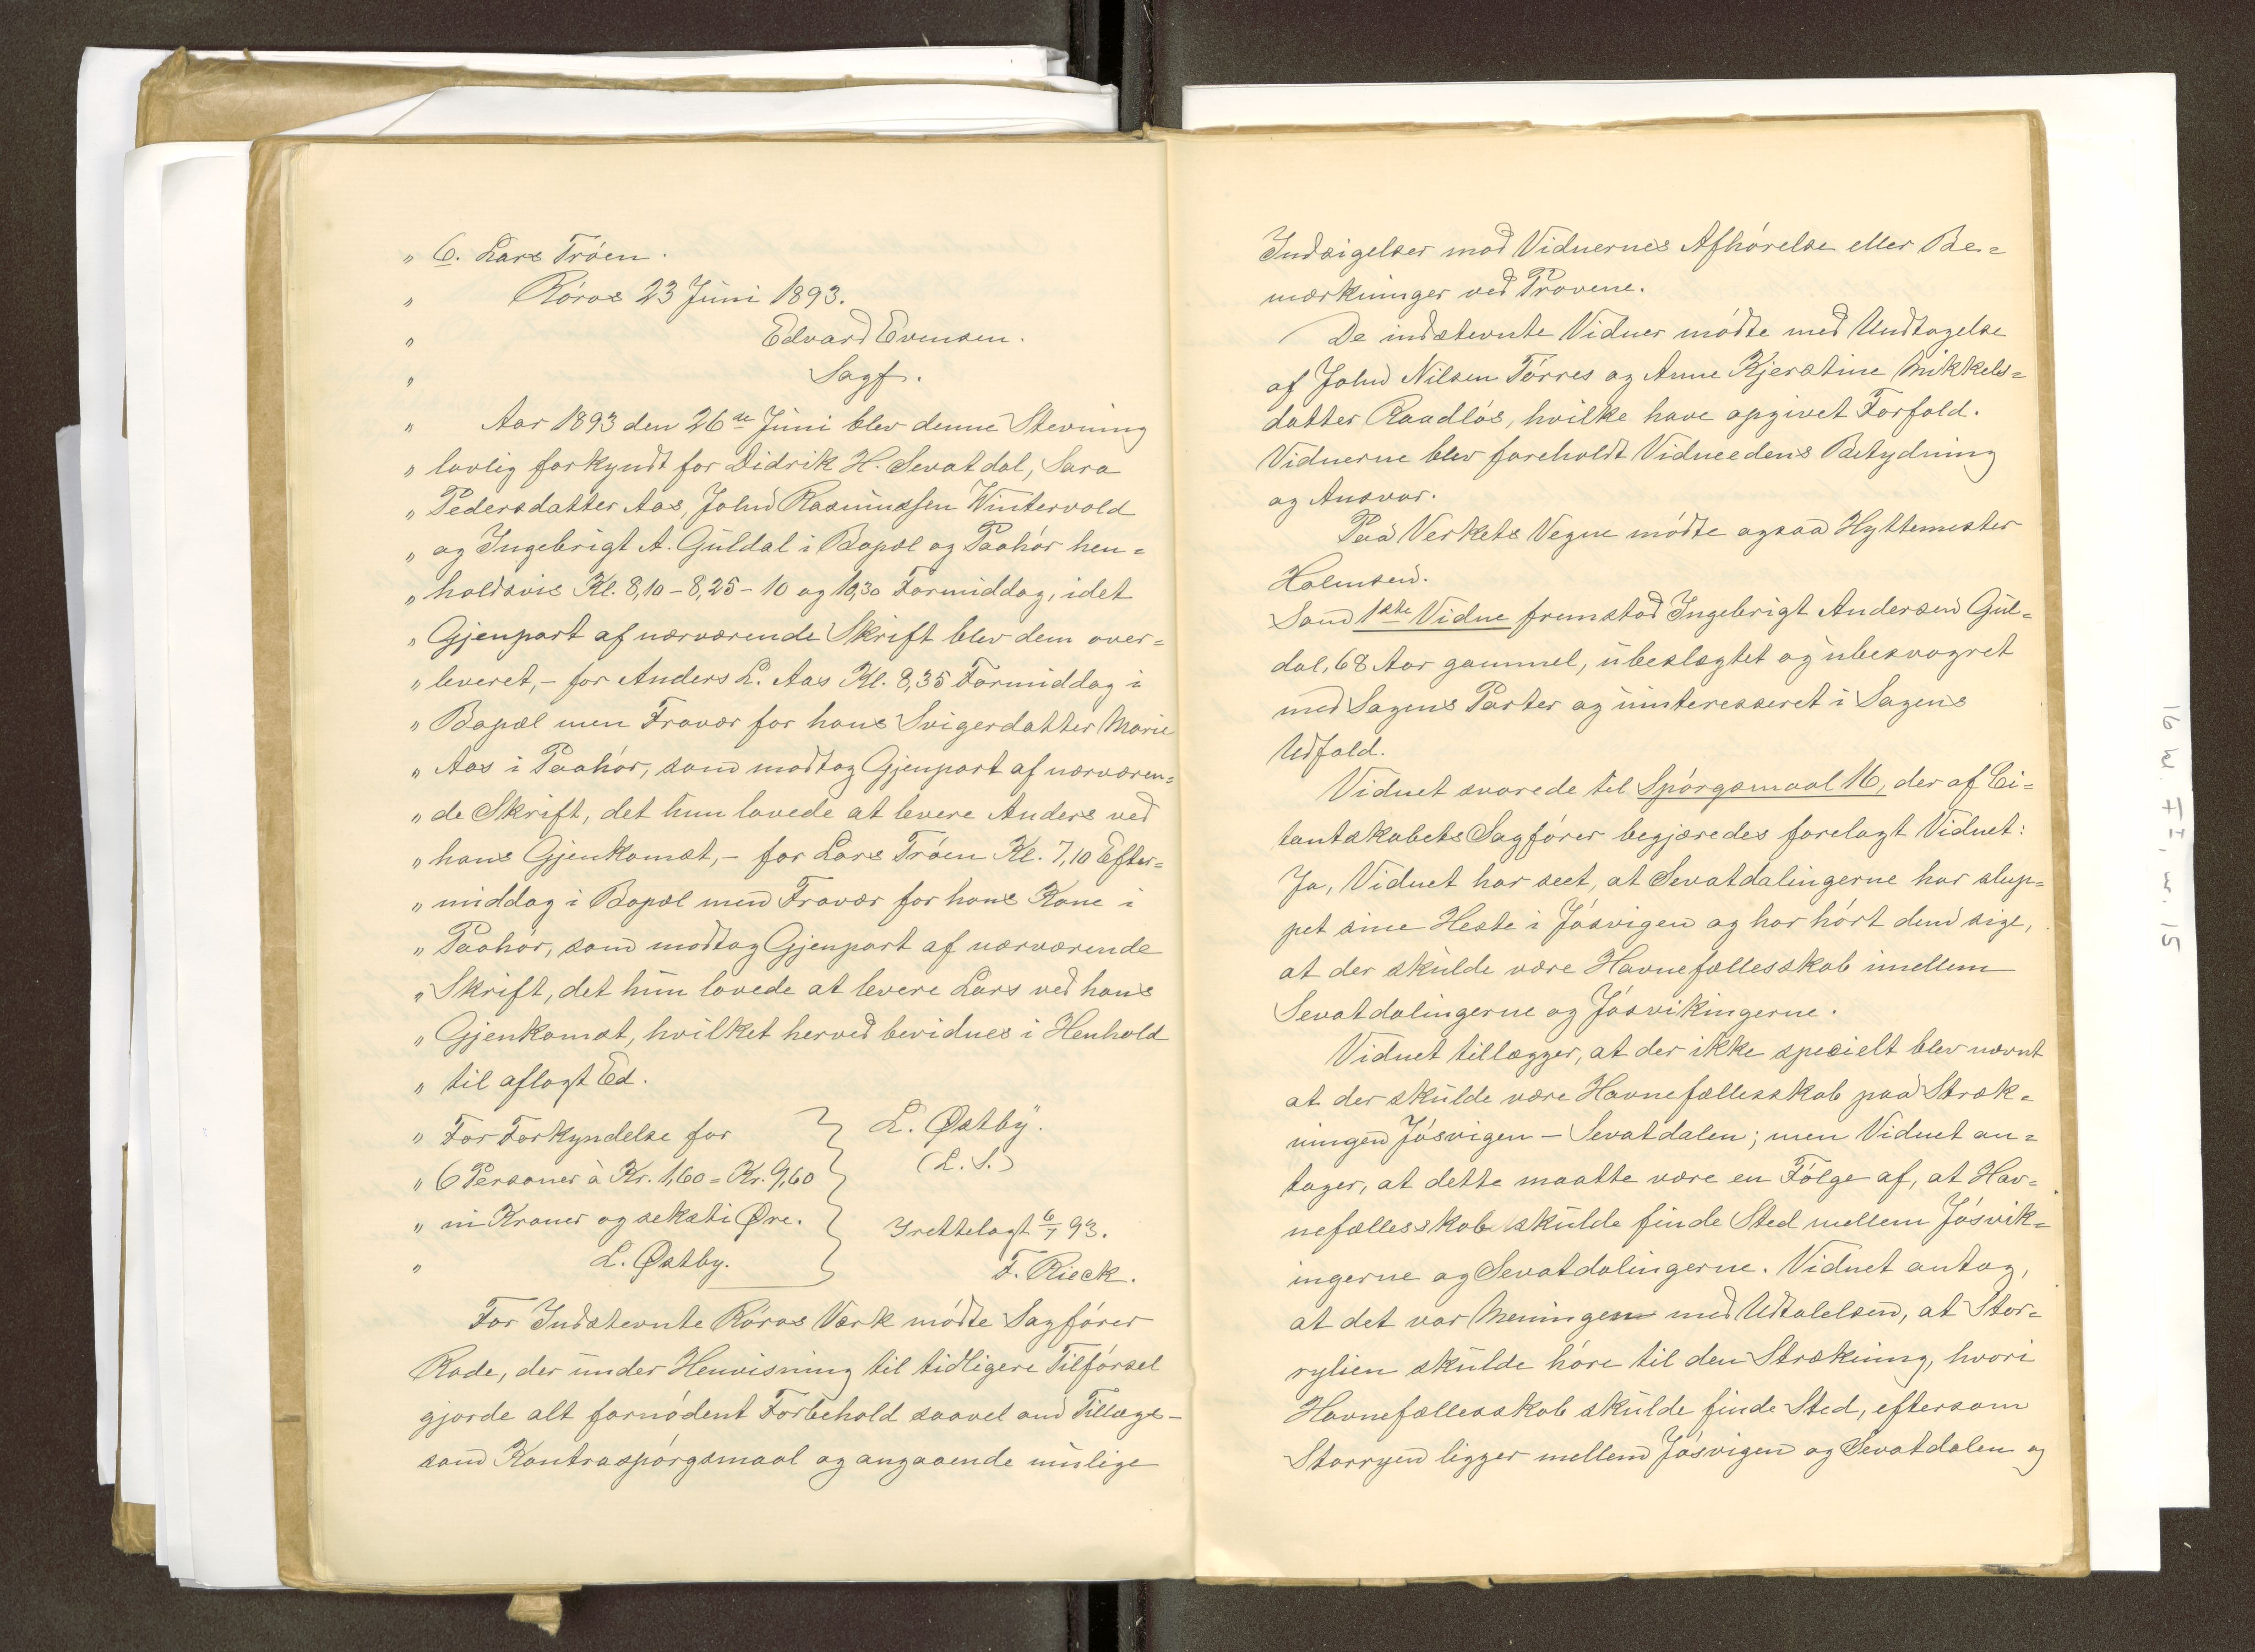 „ 6. Lars Tróen.
„ Róros 23 Juni 1893.
„ Edvard Evensen.
„ Sagf.
„ Aar 1893 den 26de Juni blev denne Stevning
„ lovlig forkyndt for Didrik H. Sevatdal, Sara
„ Pedersdatter Aas, John Rasmussen Wintervold
„ og Ingebrigt A. Guldal i Bopæl og Paahór hen=
„ holdsvis Kl. 8,10 – 8,25 – 10 og 10,30 Formiddag, idet
„ Gjenpart af nærværende Skrift blev dem over=
„ leveret, – for Anders L. Aas Kl. 8,35 Formiddag i
„ Bopæl men Fravær for hans Svigerdatter Marie
„ Aas i Paahór, som modtog Gjenpart af nærværen=
„ de Skrift, det hun lovede at levere Anders ved
„ hans Gjenkomst, – for Lars Tróen Kl. 7,10 Efter=
„ middag i Bopæl men Fravær for hans Kone i
„ Paahór, som modtog Gjenpart af nærværende
„ Skrift, det hun lovede at levere Lars ved hans
„ Gjenkomst, hvilket herved bevidnes i Henhold
„ til aflagt Ed.
„ For Forkyndelse for
„ 6 Personer à Kr. 1,60 = Kr. 9,60
„ ni Kroner og seksti Øre.
„ L. Østby.
L. Østby.
(L. S.)
Irettelagt 6/7 93.
F. Rieck.
For Indstevnte Róros Værk módte Sagfórer
Rode, der under Henvisning til tidligere Tilfórsel
gjorde alt fornódent Forbehold saavel om Tillægs-
som Kontraspórgsmaal og angaaende mulige
Indsigelser mod Vidnernes Afhórelse eller Be=
mærkninger ved Próvene.
De indstevnte Vidner módte med Undtagelse
af John Nilsen Tórres og Anne Kjerstine Mikkels=
datter Raadlós, hvilke have opgivet Forfald.
Vidnerne blev foreholdt Vidneedens Betydning
og Ansvar.
Paa Verkets Vegne módte ogsaa Hyttemester
Holmsen.
Som 1ste Vidne fremstod Ingebrigt Andersen Gul=
dal, 68 Aar gammel, ubeslægtet og ubesvogret
med Sagens Parter og uinteresseret i Sagens
Udfald.
Vidnet svarede til Spórgsmaal 16, der af Ci=
tantskabets Sagfórer begjæredes forelagt Vidnet:
Ja, Vidnet har seet, at Sevatdalingerne har slup=
pet sine Heste i Jósvigen og har hórt dem sige,
at der skulde være Havnefællesskab imellem
Sevatdalingerne og Jósvikingerne.
Vidnet tillægger, at der ikke specielt blev nævnt
at der skulde være Havnefællesskab paa Stræk=
ningen Jósvigen – Sevatdalen; men Vidnet an=
tager, at dette maatte være en Fólge af, at Hav=
nefællesskab skulde finde Sted mellem Jósvik=
ingerne og Sevatdalingerne. Vidnet antog,
at det var Meningen med Udtalelsen, at Stor=
rylien skulde hóre til den Strækning, hvori
Havnefællesskab skulde finde Sted, eftersom
Storryen ligger mellem Jósvigen og Sevatdalen og